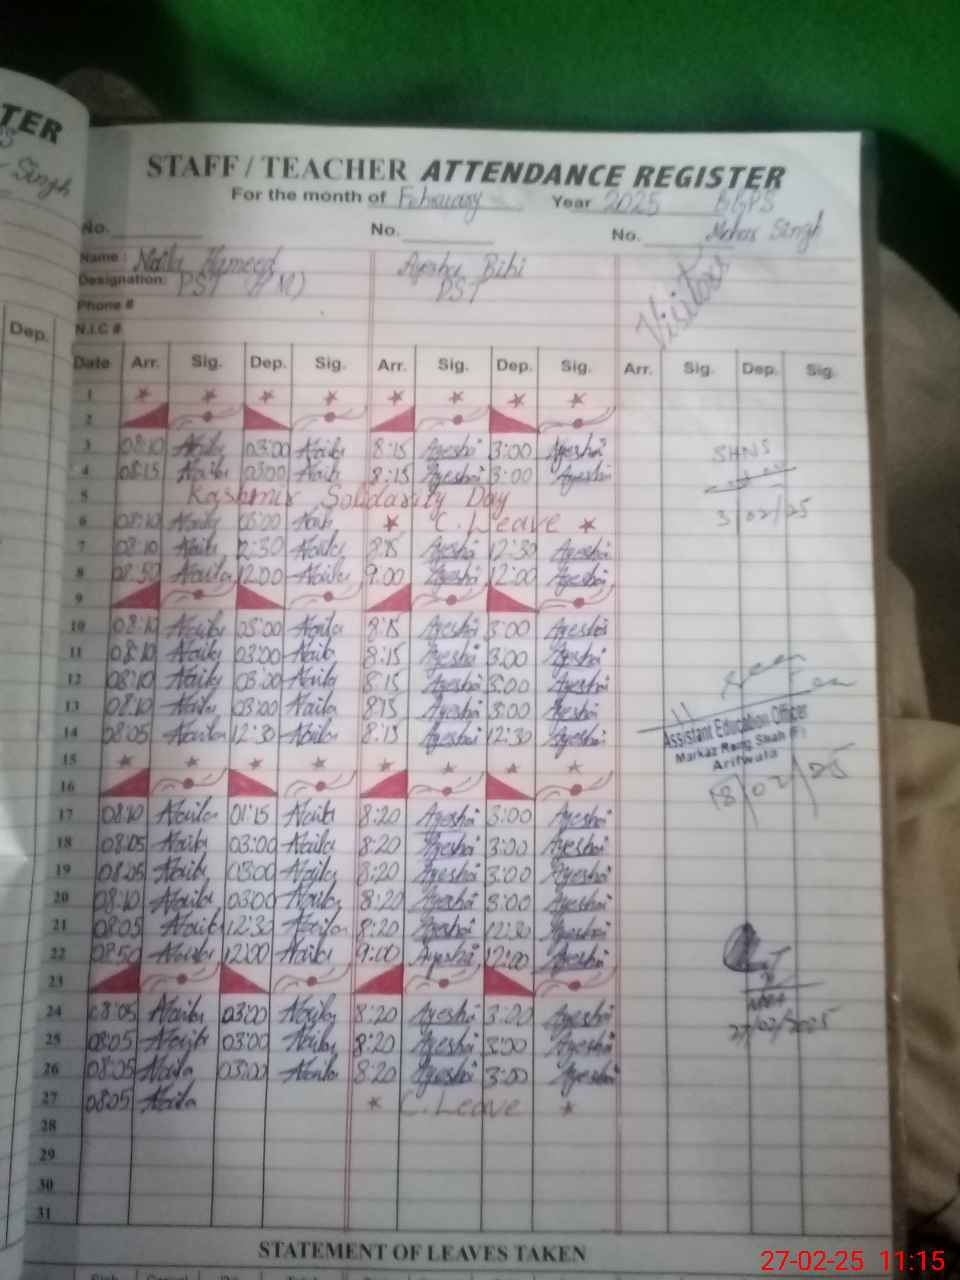 TER
Singh
STAFF / TEACHER ATTENDANCE REGISTER
For the month of February Year 2025 GGPS
No. No. No. Singh
Name : Naila Hameed Ayesha Bibi Visitors
Designation: PST PST
Phone #
N.I.C #
Dep.
Date Arr. Sig. Dep. Sig. Arr. Sig. Dep. Sig. Arr. Sig. Dep. Sig.
1
2
3 08:10 Naila 03:00 Naila 8:15 Ayesha 3:00 Ayesha
4 08:15 Naila 03:00 Naila 8:15 Ayesha 3:00 Ayesha
5 Kashmir Solidarity Day
6 08:10 Naila Naila C. Leave
3/02/25
7 08:10 Naila 12:30 Naila 8:15 Ayesha 12:30 Ayesha
8 08:50 Naila 12:00 Naila 9:00 Ayesha 12:00 Ayesha
9
10 08:10 Naila 03:00 Naila 8:15 Ayesha 3:00 Ayesha
11 08:10 Naila 03:00 Naila 8:15 Ayesha 3:00 Ayesha
12 08:10 Naila 03:00 Naila 8:15 Ayesha 3:00 Ayesha
13 08:10 Naila 03:00 Naila 8:15 Ayesha 3:00 Ayesha
14 08:05 Naila 12:30 Naila 8:15 Ayesha 12:30 Ayesha
Assistant Education Officer
Markaz Rang Shah (F)
Arifwala
18/02/25
15
16
17 08:10 Naila 01:15 Naila 8:20 Ayesha 3:00 Ayesha
18 08:05 Naila 03:00 Naila 8:20 Ayesha 3:00 Ayesha
19 08:05 Naila 03:00 Naila 8:20 Ayesha 3:00 Ayesha
20 08:10 Naila 03:00 Naila 8:20 Ayesha 3:00 Ayesha
21 08:05 Naila 12:30 Naila 8:20 Ayesha 12:30 Ayesha
22 08:50 Naila 12:00 Naila 9:00 Ayesha 12:00 Ayesha
23
24 08:05 Naila 03:00 Naila 8:20 Ayesha 3:00 Ayesha
27/02/2025
25 08:05 Naila 03:00 Naila 8:20 Ayesha 3:00 Ayesha
26 08:05 Naila 03:00 Naila 8:20 Ayesha 3:00 Ayesha
27 08:05 Naila C. Leave
28
29
30
31
STATEMENT OF LEAVES TAKEN
27-02-25 11:15